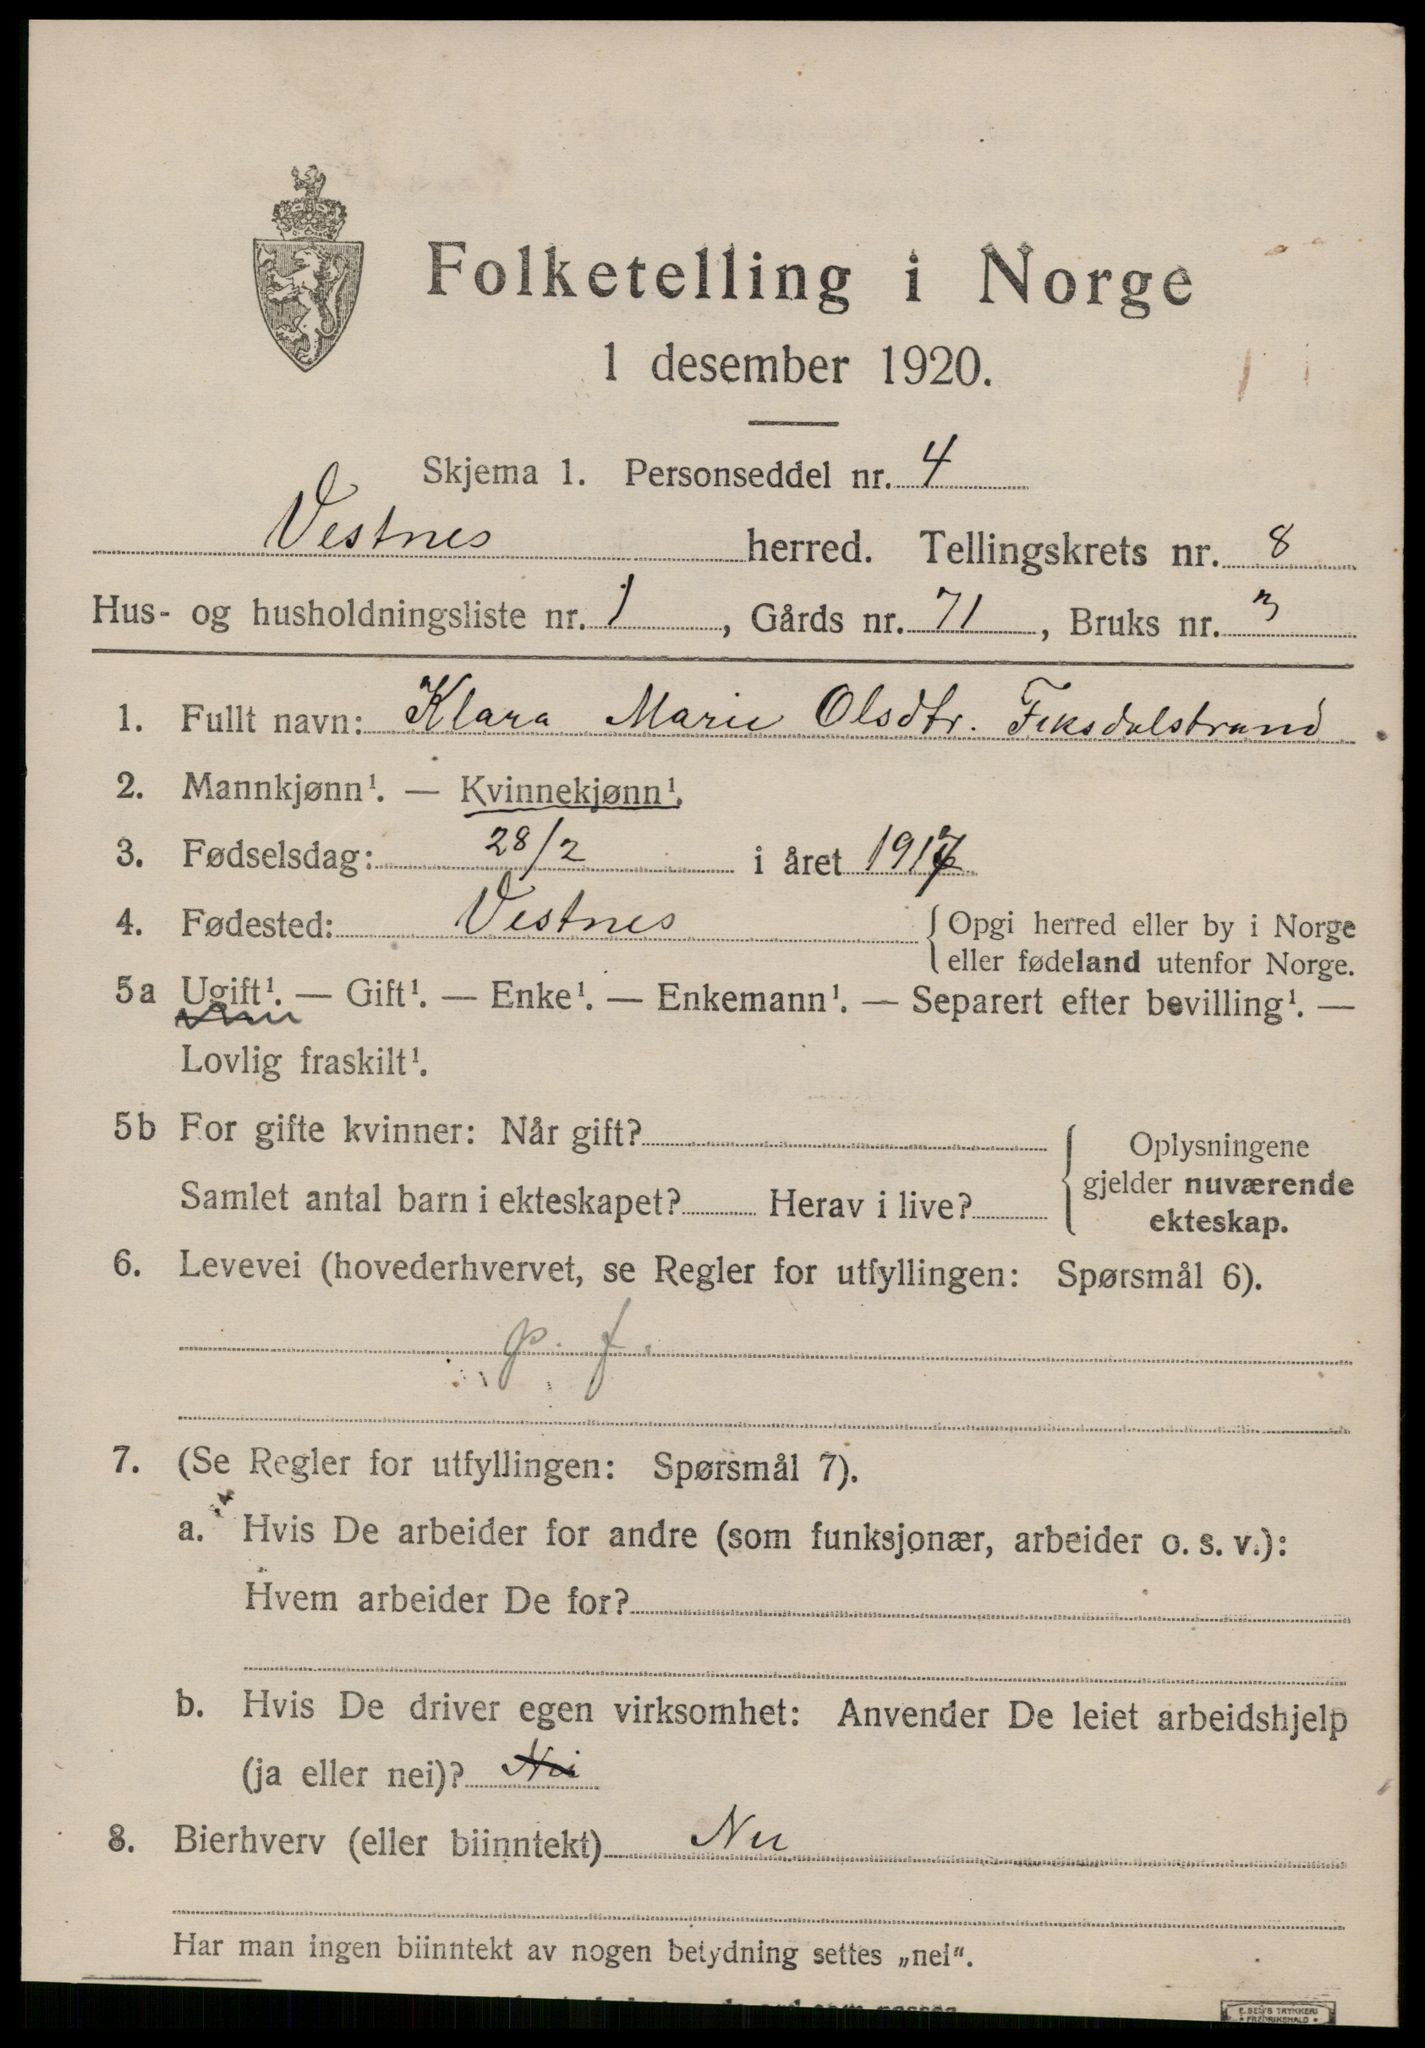 Folketelling i Norge
1 desember 1920.
Skjema 1. Personseddel nr. 4
Vestnes herred. Tellingskrets nr. 8
Hus- og husholdningsliste nr. 1, Gårds nr. 71, Bruks nr. 3
1. Fullt navn: Klara Marie Olsdtr. Fiksdalstrand
2. Mannkjønn¹. — Kvinnekjønn¹.
3. Fødselsdag: 28/2 i året 1917
4. Fødested: Vestnes { Opgi herred eller by i Norge
eller fødeland utenfor Norge.
5a Ugift¹. — Gift¹. — Enke¹. — Enkemann¹. — Separert efter bevilling¹. —
Lovlig fraskilt¹.
5b For gifte kvinner: Når gift?
Samlet antal barn i ekteskapet? Herav i live?
Oplysningene
gjelder nuværende
ekteskap.
6. Levevei (hovederhvervet, se Regler for utfyllingen: Spørsmål 6).
p. f.
7. (Se Regler for utfyllingen: Spørsmål 7).
a. Hvis De arbeider for andre (som funksjonær, arbeider o. s. v.):
Hvem arbeider De for?
b. Hvis De driver egen virksomhet: Anvender De leiet arbeidshjelp
(ja eller nei)? Nei
8. Bierhverv (eller biinntekt) Nei
Har man ingen biinntekt av nogen betydning settes „nei“.
E. SEM'S TRYKKERI
FREDRIKSHALD